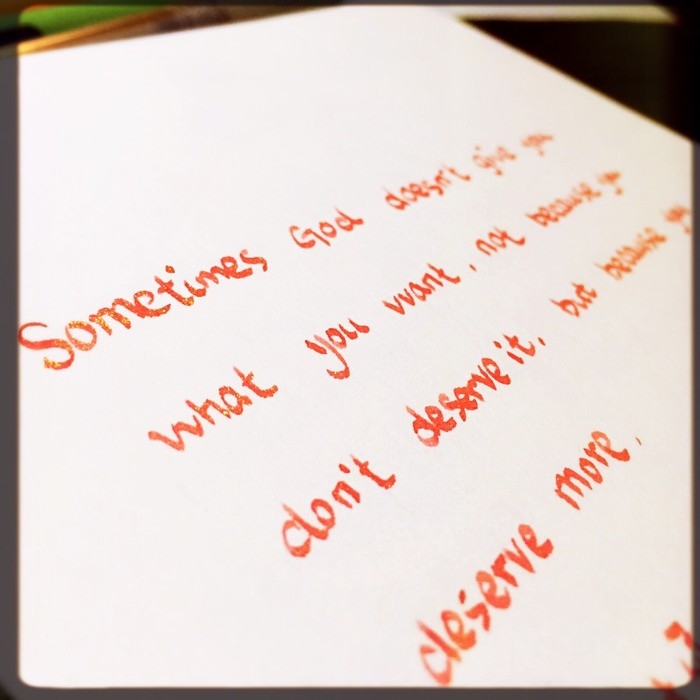 Sometimes God doesn't give you
what you want, not because you
don't deserve it, but because you
deserve more.